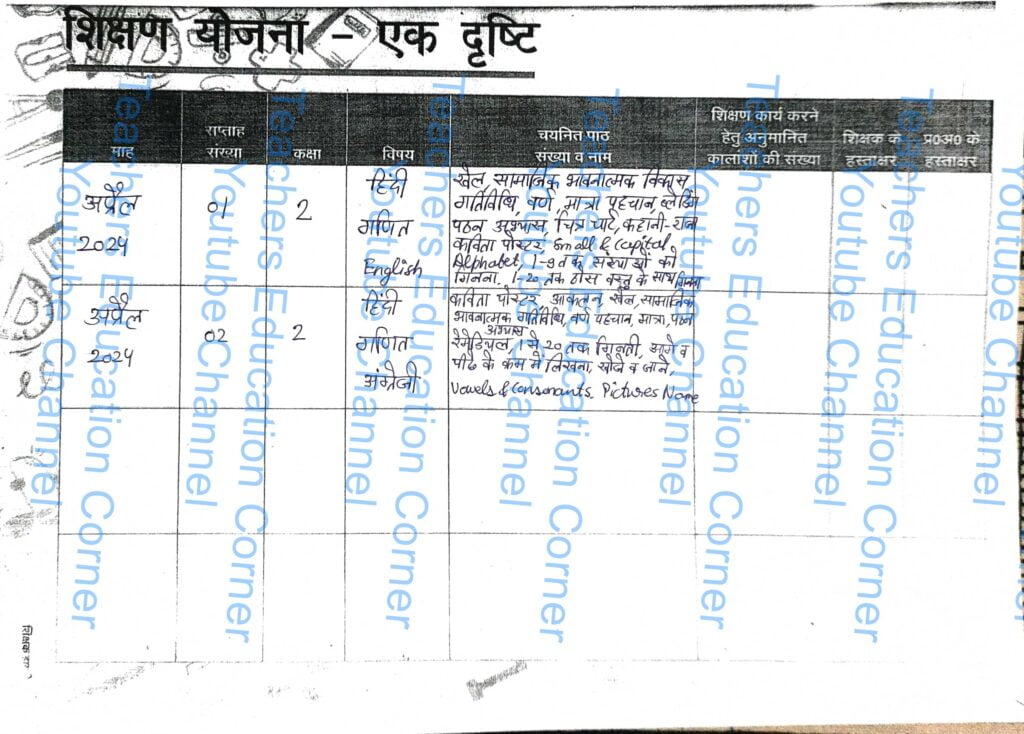 शिक्षण योजना - एक दृष्टि
माह
सप्ताह
संख्या
कक्षा
विषय
चयनित पाठ
संख्या व नाम
शिक्षण कार्य करने
हेतु अनुमानित
कालांशों की संख्या
शिक्षक के
हस्ताक्षर
प्र०अ० के
हस्ताक्षर
अप्रैल
2024
01
2
हिंदी
गणित
English
खेल सामाजिक भावनात्मक विकास
गतिविधि, वर्ण, मात्रा पहचान, ब्लेंडिंग
पठन अभ्यास, चित्र चार्ट, कहानी-
कविता पोस्टर, Small & Capital
Alphabet, 1-9 तक संख्याओं को
गिनना. 1-20 तक ठोस वस्तु के साथ
अप्रैल
2024
02
2
हिंदी
गणित
अंग्रेजी
कविता पोस्टर, आकलन, खेल, सामाजिक
भावनात्मक गतिविधि, वर्ण पहचान, मात्रा, पठन
अभ्यास
रेमेडियल, 1 से 20 तक गिनती, आगे व
पीछे के क्रम में लिखना,
Vowels & Consonants. Pictures Name
Teachers Education Corner
Youtube Channel
Teachers Education Corner
Youtube Channel
Teachers Education Corner
Youtube Channel
Teachers Education Corner
Youtube Channel
Teachers Education Corner
Youtube Channel
Teachers Education Corner
Youtube Channel